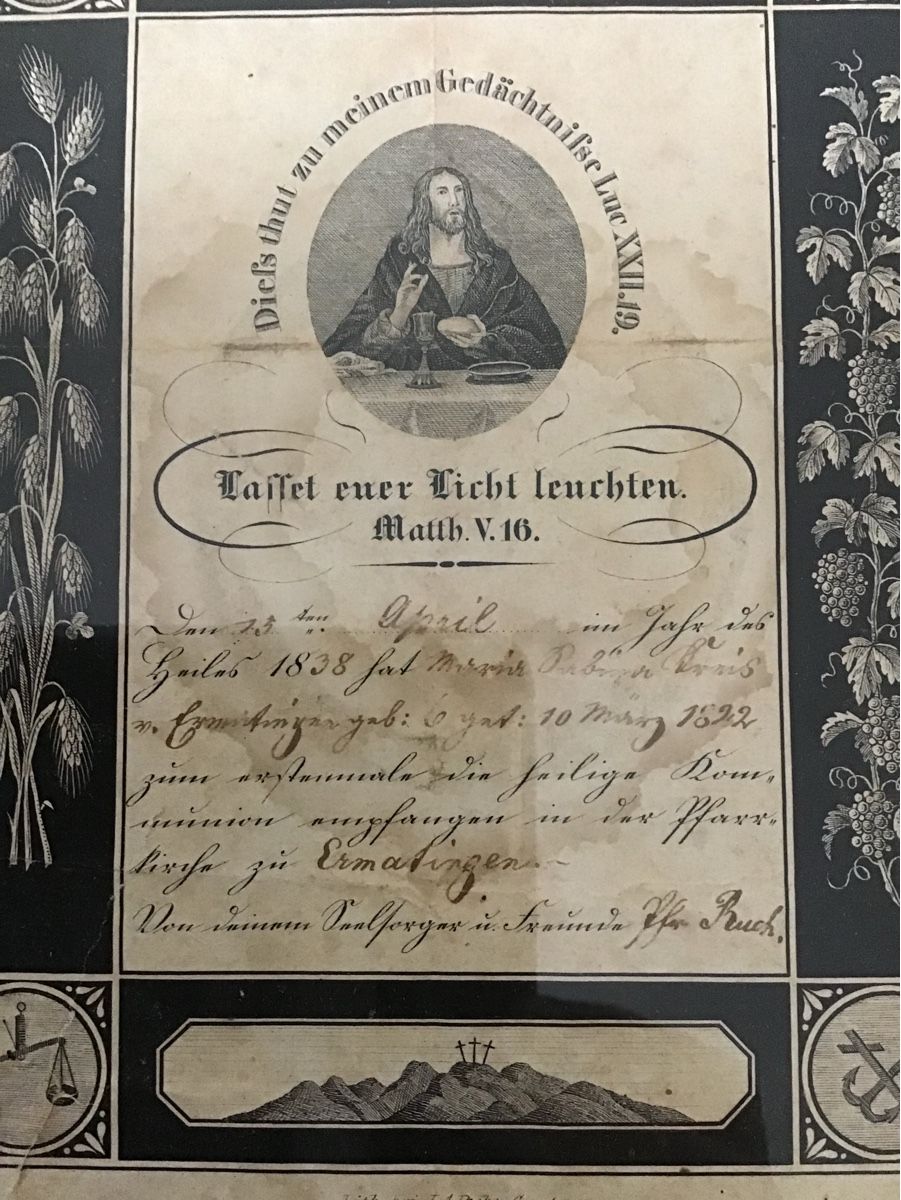 Dieſs thut zu meinem Gedächtniſse Luc XXII.19.
Laſſet euer Licht leuchten.
Matth. V. 16.
Den 15 ten April im Jahr des
Heiles 1838 hat Maria Sabina Kreis
v. Ermatingen geb: 6 get: 10 März 1822
zum erstenmale die heilige Kom-
munion empfangen in der Pfarr-
kirche zu Ermatingen.
Von deinem Seelsorger u. Freunde Pfr Ruch.